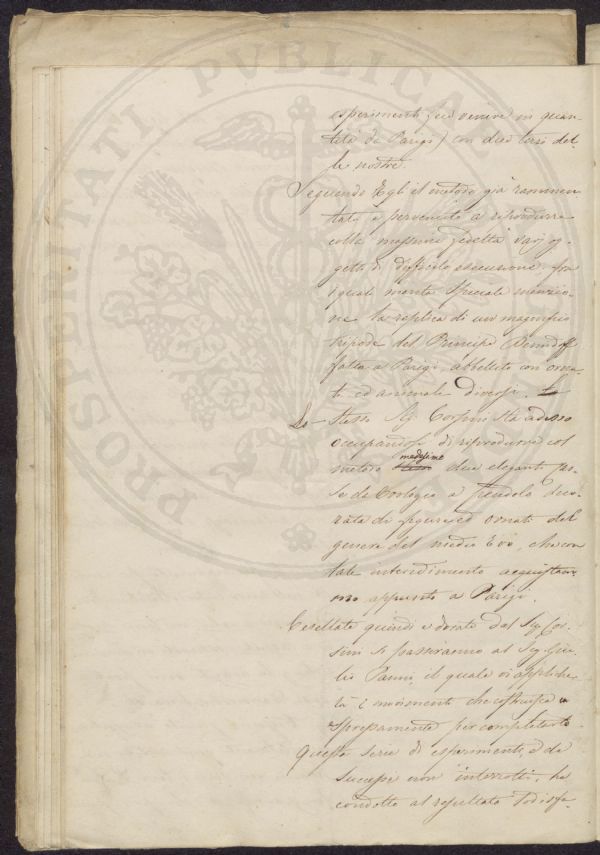 PROSPERITATI PUBLICAE
esperimenti fuo venire in quan-
tità da Parigi) con dei bronzi del-
le nostre.
Seguendo Egli il metodo già rammen-
tato, è pervenuto a riprodurre
colla massima fedeltà varj og-
getti di difficile esecuzione, fra
i quali merita speciale menzio-
ne la replica di un magnifico
tripode del Principe Demidoff
fatto a Parigi, abbellito con orna-
ti ed animali diversi.
Lo Stesso Sig. Corsini sta adesso
occupandosi di riprodurre col
metodo medesimo due eleganti cas-
se da Orologio a pendolo deco-
rate di figure ed ornati del
genere del medio Evo, che con
tale intendimento acquistaro-
no appunto a Parigi.
Cesellate quindi e dorate dal Sig. Cor-
sini si passeranno al Sig. Giu-
lio Panni, il quale vi appliche-
rà i movimenti che costruisce
espressamente per completarle.
Questa serie di esperimenti, e de
successi non interrotti, ha
condotto al resultato sodisfa-